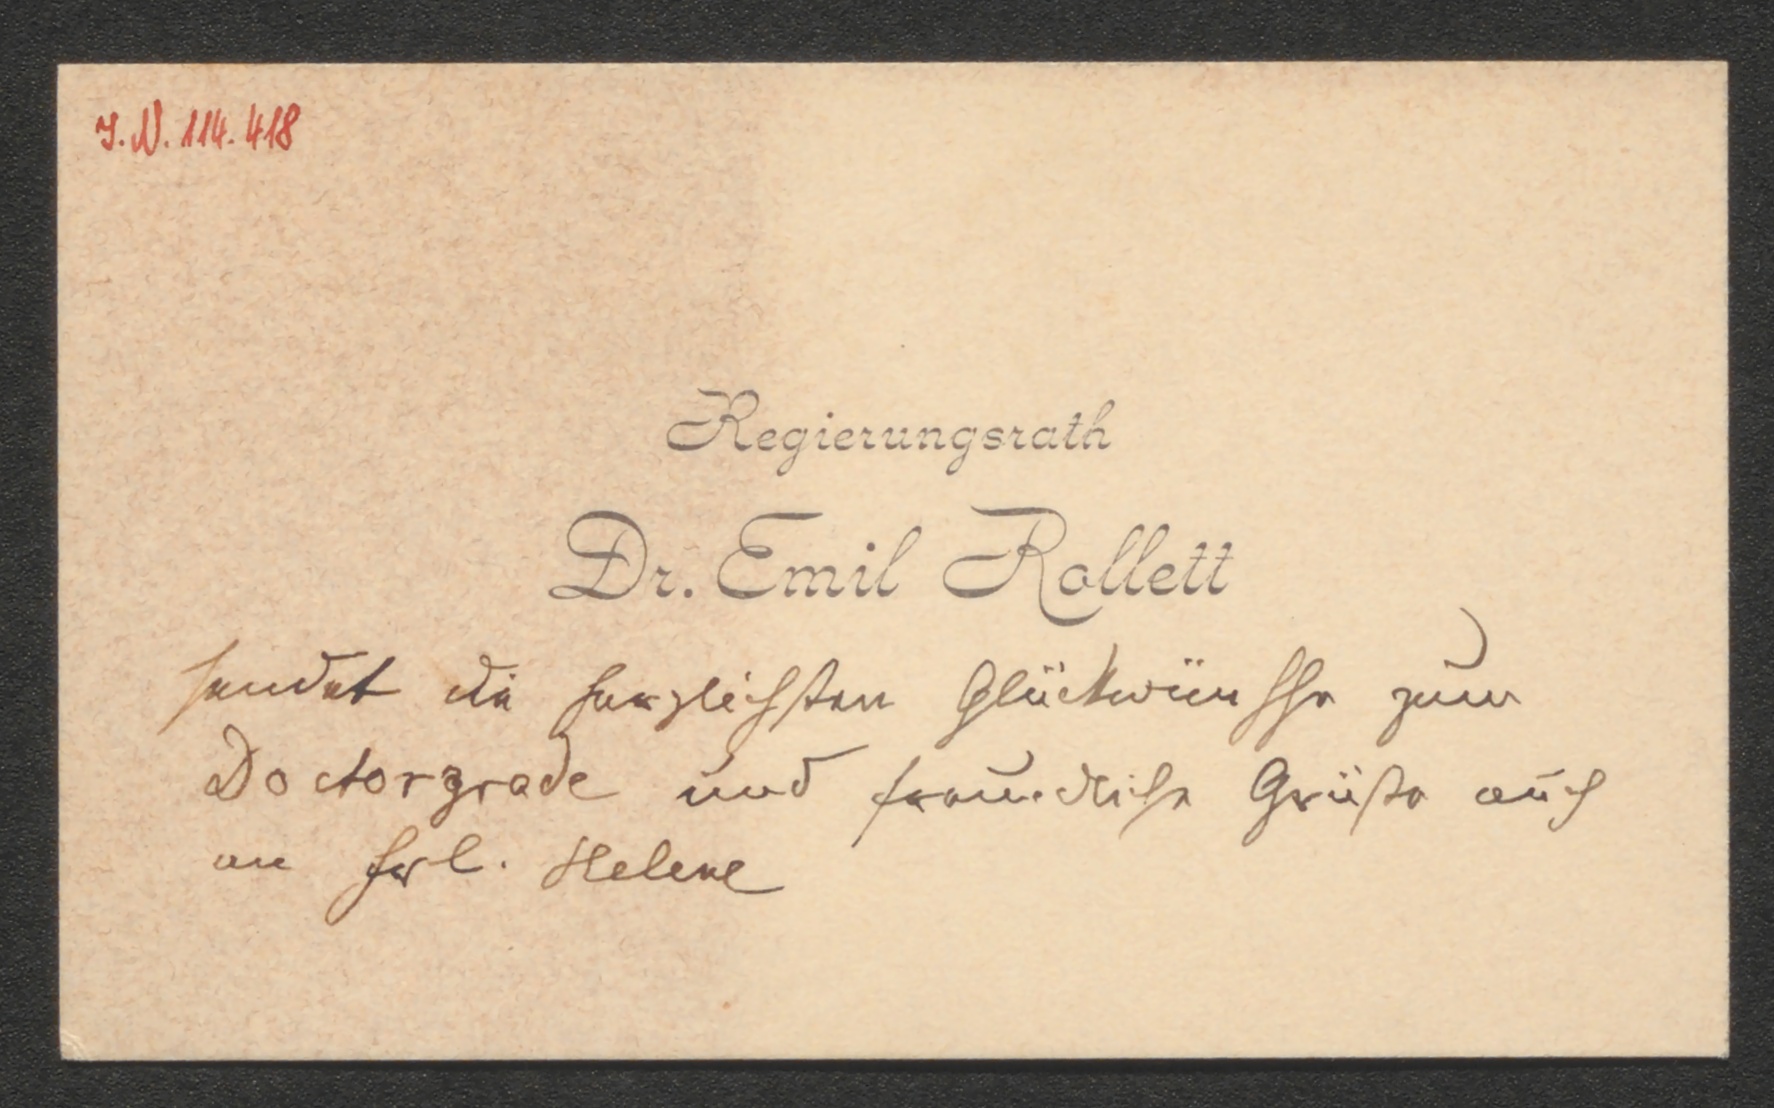 J.N. 114.418
Regierungsrath
Dr. Emil Rollett
sendet die herzlichsten Glückwünsche zum
Doctorgrade und freundliche Grüße auch
an Frl. Helene